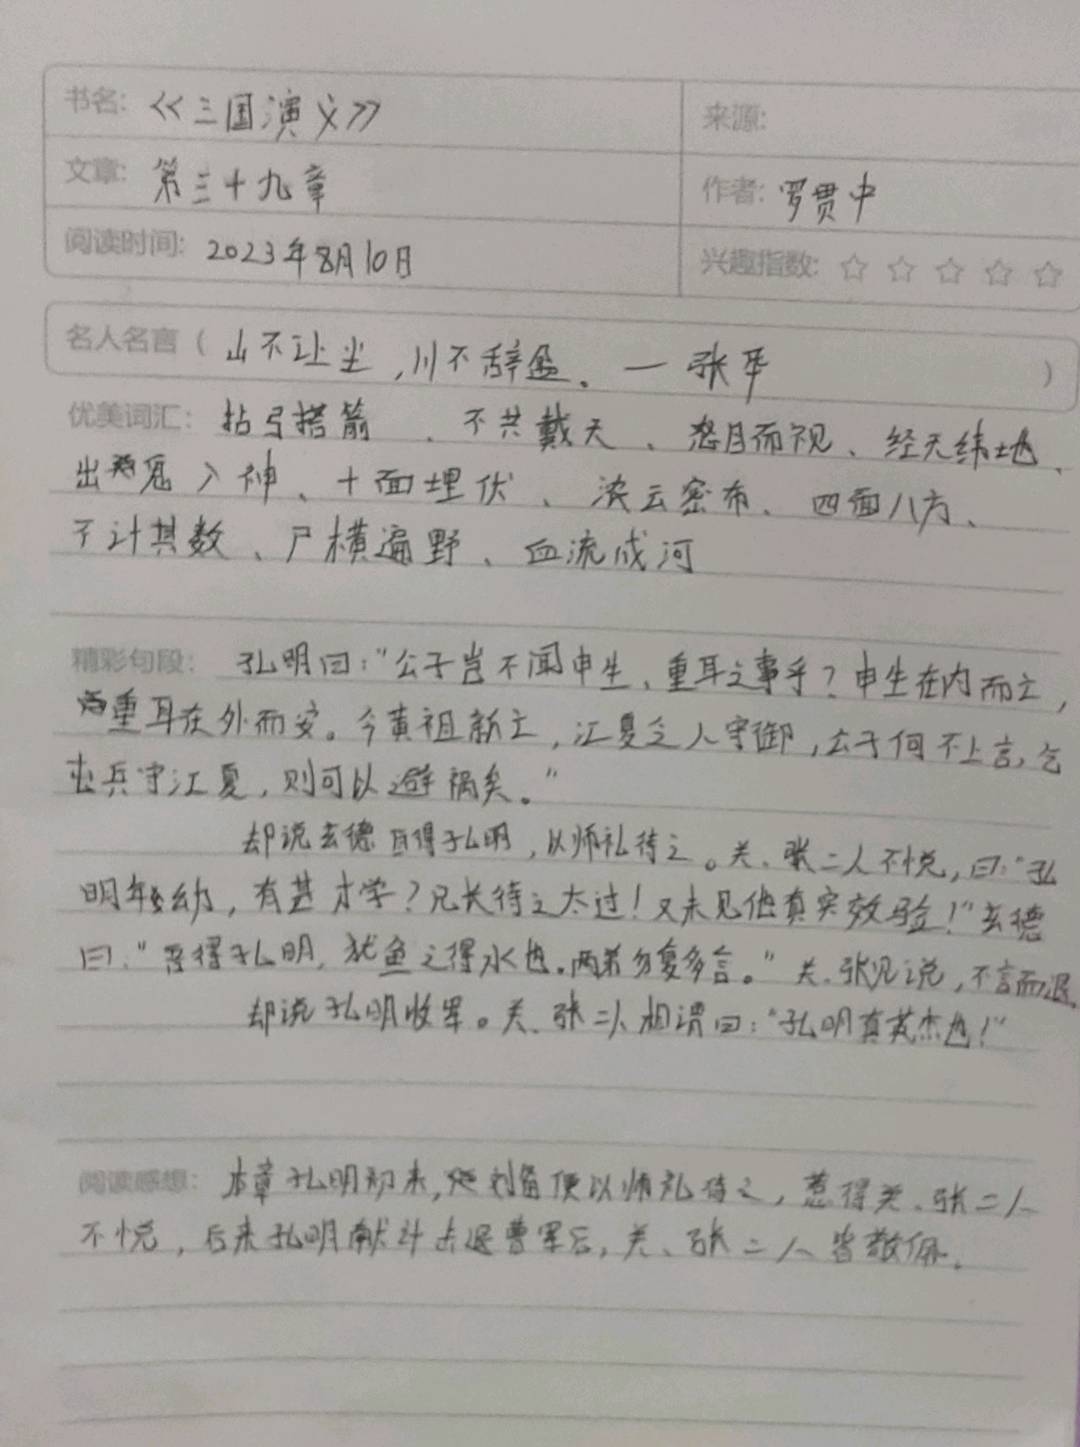 书名: 《三国演义》 来源:
文章: 第三十九章 作者: 罗贯中
阅读时间: 2023年8月10日 兴趣指数: ☆ ☆ ☆ ☆ ☆
名人名言 ( 山不让尘,川不辞盈。一 张华 )
优美词汇: 拈弓搭箭 、不共戴天、怒目而视、经天纬地、
出鬼入神、十面埋伏、浓云密布、四面八方、
不计其数、尸横遍野、血流成河
精彩句段: 孔明曰:“公子岂不闻申生、重耳之事乎?申生在内而亡,
重耳在外而安。今黄祖新亡,江夏乏人守御,公子何不上言,乞
屯兵守江夏,则可以避祸矣。”
却说玄德自得孔明,以师礼待之。关、张二人不悦,曰:“孔
明年幼,有甚才学?兄长待之太过!又未见他真实效验!”玄德
曰:“吾得孔明,犹鱼之得水也。两弟勿复多言。”关、张见说,不言而退。
却说孔明收军。关、张二人相谓曰:“孔明真英杰也!”
阅读感想: 本章孔明初来,刘备便以师礼待之,惹得关、张二人
不悦,后来孔明献计击退曹军后,关、张二人皆敬佩。